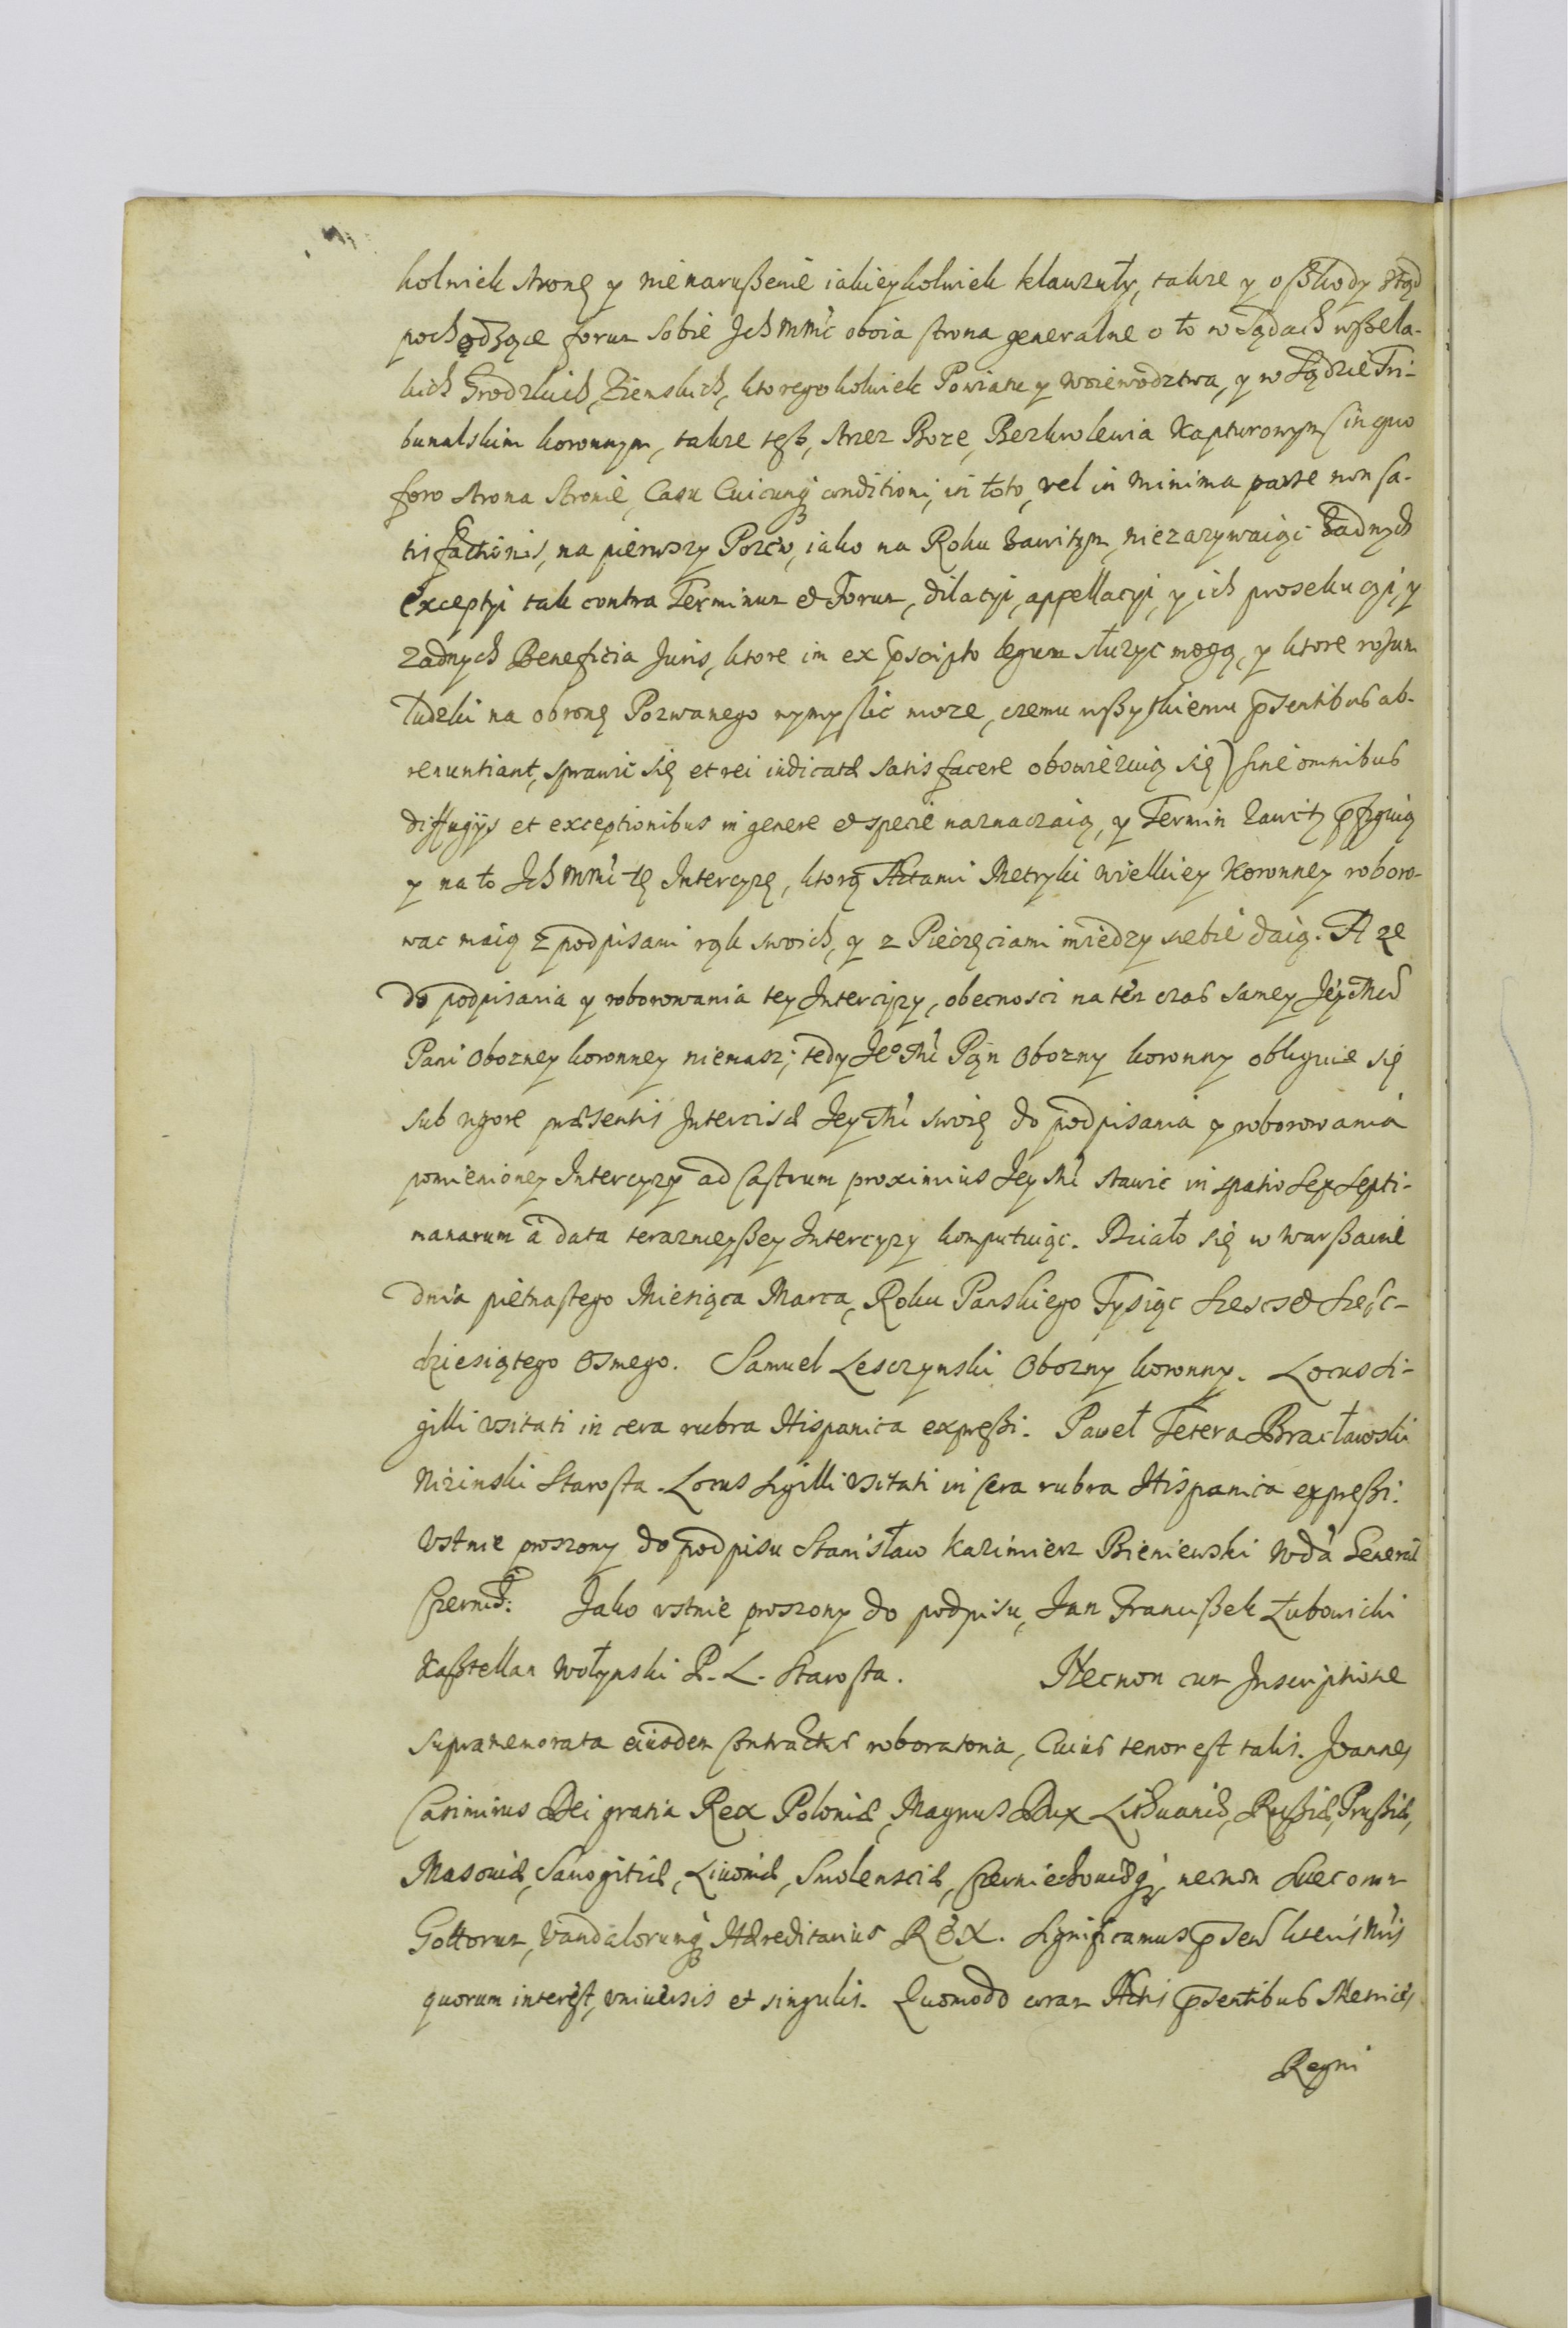 kolwiek stronę y nienarußenie iakieykolwiek klauzuły, takze y o ßkody ztąd
pochodzące forum sobie Ich Mmć oboia strona generalne o to w Sądach wßela-
kich Grodzkich, Ziemskich, ktoregokolwiek Powiatu y Woiewodztwa, y w Sądzie Tri-
bunalskim koronnym, takze teß, strzez Boze, Bezkrolewia Kapturowym (in quo
foro strona stronie, Casu Cuicunq conditioni, in toto, vel in minima parte non sa-
tisfactionis, na pierwszy Pozew, iako na Roku zawitym, niezazywaiąc zadnych
exceptyi tak contra Terminum et Forum, dilatyi, appellacyi, y ich prosekucyi, y
zadnych Beneficia Juris, ktore im ex pscripto legum słuzyc mogą, y ktore rozum
ludzki na obronę Pozwanego wymyslic moze, czemu wßyskiemu psentibus ab-
renuntiant, sprawic się et rei iudicatæ satisfacere obowięzuią się) sine omnibus
diffugijs et exceptionibus in genere et specie naznaczaią, y Termin zawity pfiguią
y na to Ich Mmć tę Intercyzę, ktorą Aktami Metryki Wielkiey Koronney roboro-
wac maią z podpisami rąk swoich, y z Pieczęciami miedzy siebie daią. A ze
do podpisania y roborowania tey Intercyzy, obecnosci na ten czas samey Jey Mci
Pani Obozney koronney niemasz; tedy Jeo Mć Pan Obozny koronny obliguie się
sub rigore præsentis Intercisæ Jey Mć swoię do podpisania y roborowania
pomienioney Intercyzy ad Castrum proximius Jey Mć stawic in spatio sex septi-
manarum a data terazneyßey Intercyzy komputuiąc. Działo się w Warßawie
dnia piętnastego Miesiąca Marca, Roku Panskiego Tysiąc szescset szesc-
dziesiątego osmego. Samuel Lesczynski Obozny koronny. Locus si-
gilli usitati in cera rubra Hispanica expreßi. Paweł Tetera Bracławski
Nizinski Starosta. Locus sigilli usitati in cera rubra Hispanica expreßi.
Ustnie proszony do podpisu Stanisław Kazimierz Bieniewski Wda General
Czernieh: Jako ustnie proszony do podpisu, Jan Francißek Łubowicki
Kaßtellan Wołynski P. L. Starosta. Necnon cum Inscriptione
supramemorata eiusdem Contractus roboratoria, Cuius tenor est talis. Joannes
Casimirus Dei gratia Rex Poloniæ, Magnus Dux Lithuaniæ, Rußiæ, Prußiæ,
Masoviæ, Samogitiæ, Livoniæ, Smolensciæ, Czerniechoviæq, necnon Suecorum
Gottorum, Vandalorumq Hæreditarius Rex. Significamus psent literis Nris
quorum interest, universis et singulis. Quomodo coram Actis psentibus Metrices
Regni